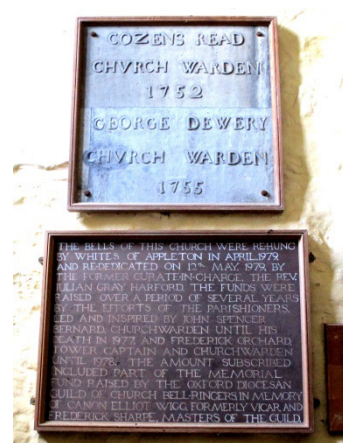 COZENS READ
CHVRCH WARDEN
1752
GEORGE DEWERY
CHVRCH WARDEN
1755
THE BELLS OF THIS CHURCH WERE REHUNG
BY WHITES OF APPLETON IN APRIL, 1979,
AND RE-DEDICATED ON 12TH MAY, 1979, BY
THE FORMER CURATE-IN-CHARGE, THE REV.
JULIAN GRAY HARFORD. THE FUNDS WERE
RAISED OVER A PERIOD OF SEVERAL YEARS
BY THE EFFORTS OF THE PARISHIONERS,
LED AND INSPIRED BY JOHN SPENCER
BERNARD, CHURCHWARDEN UNTIL HIS
DEATH IN 1977, AND FREDERICK ORCHARD,
TOWER CAPTAIN AND CHURCHWARDEN
UNTIL 1978. THE AMOUNT SUBSCRIBED
INCLUDED PART OF THE MEMORIAL
FUND RAISED BY THE OXFORD DIOCESAN
GUILD OF CHURCH BELL-RINGERS IN MEMORY
OF CANON ELLIOT WIGG, FORMERLY VICAR, AND
FREDERICK SHARPE, MASTERS OF THE GUILD.